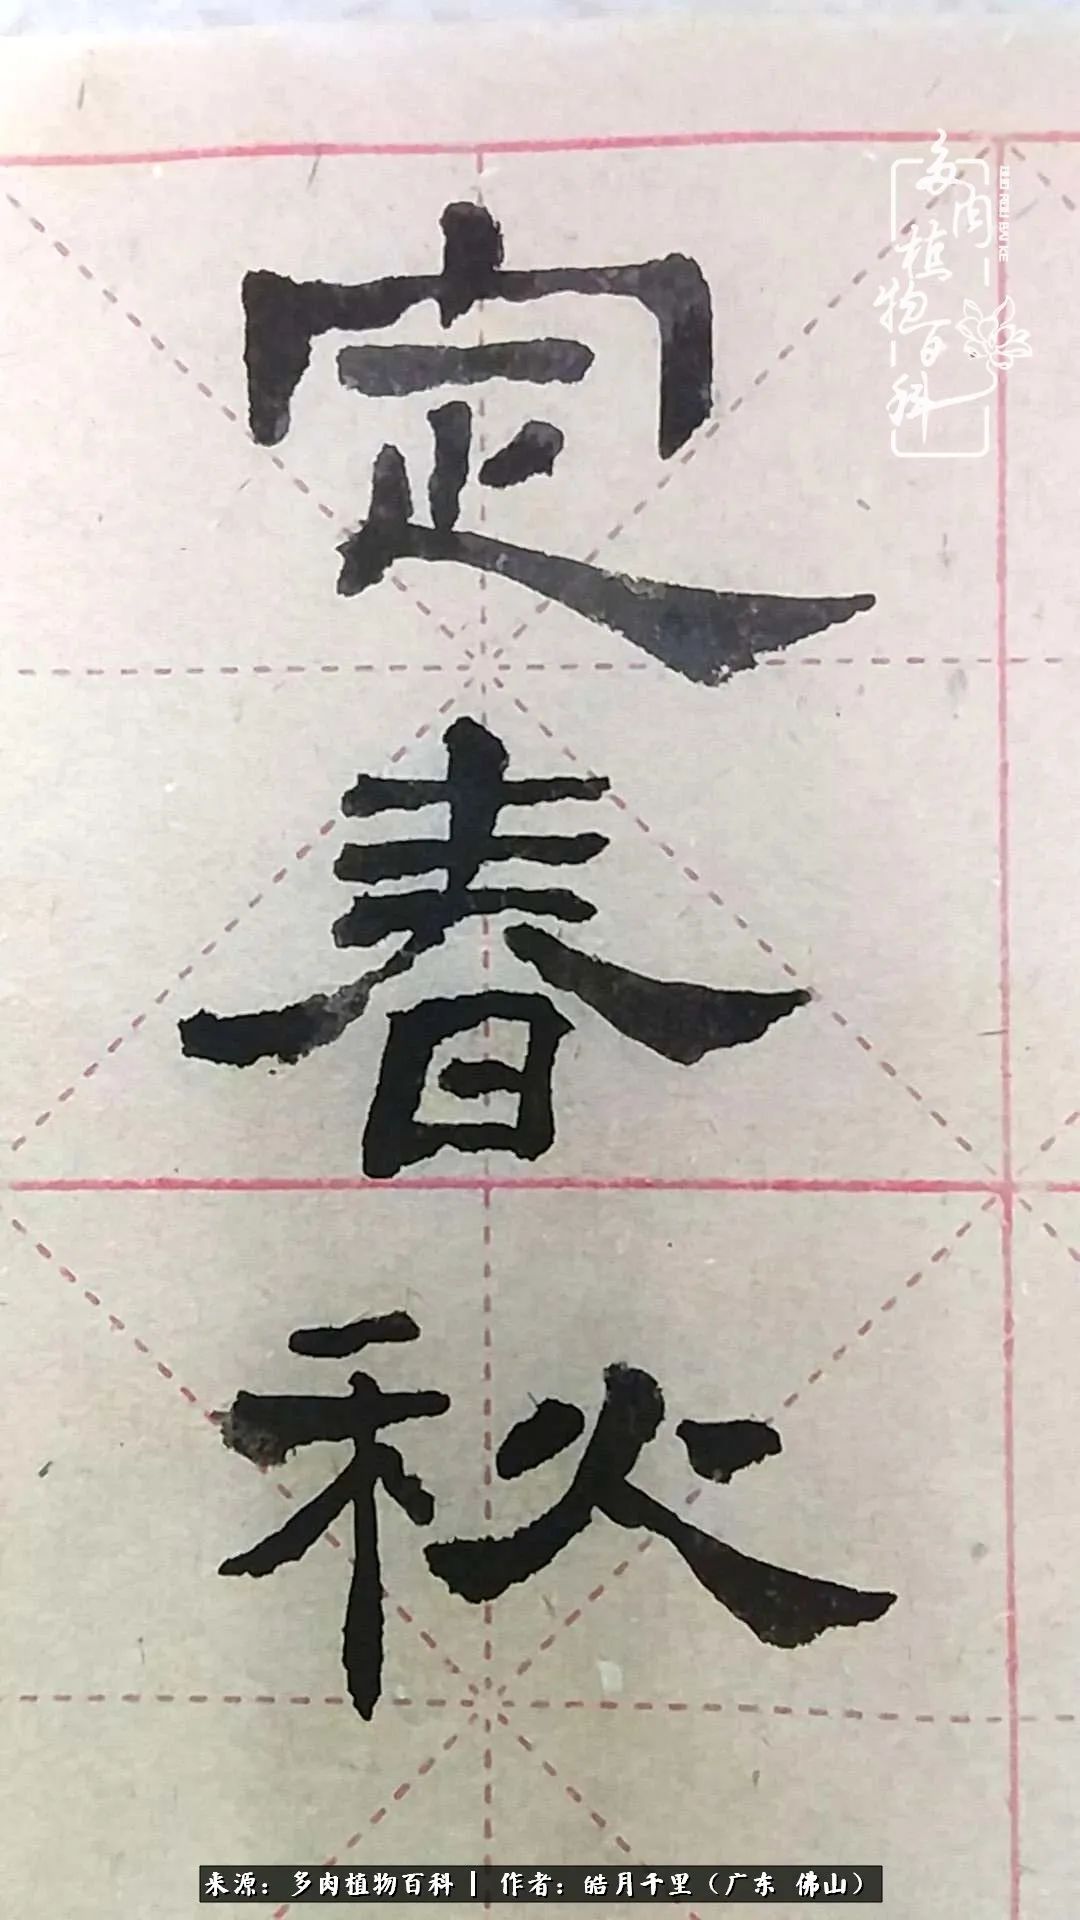 定
春
秋
多肉植物百科
DUO ROU BAI KE
来源：多肉植物百科 | 作者：皓月千里（广东 佛山）